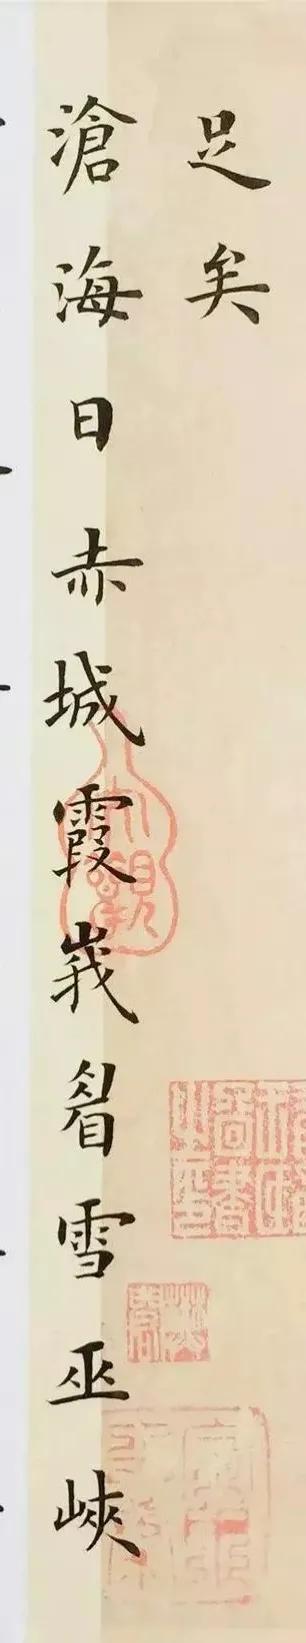 足矣
滄海日赤城霞峩睂雪巫峽